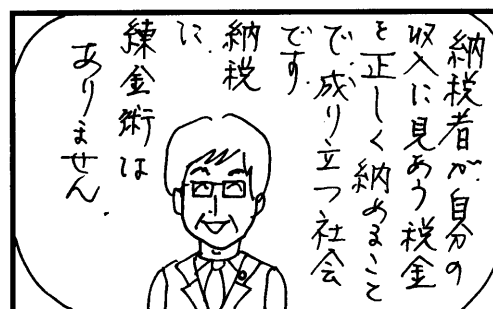 納税者が自分の
収入に見あう税金
を正しく納めること
で、成り立つ社会
です。
納税
に
練金術は
ありません。